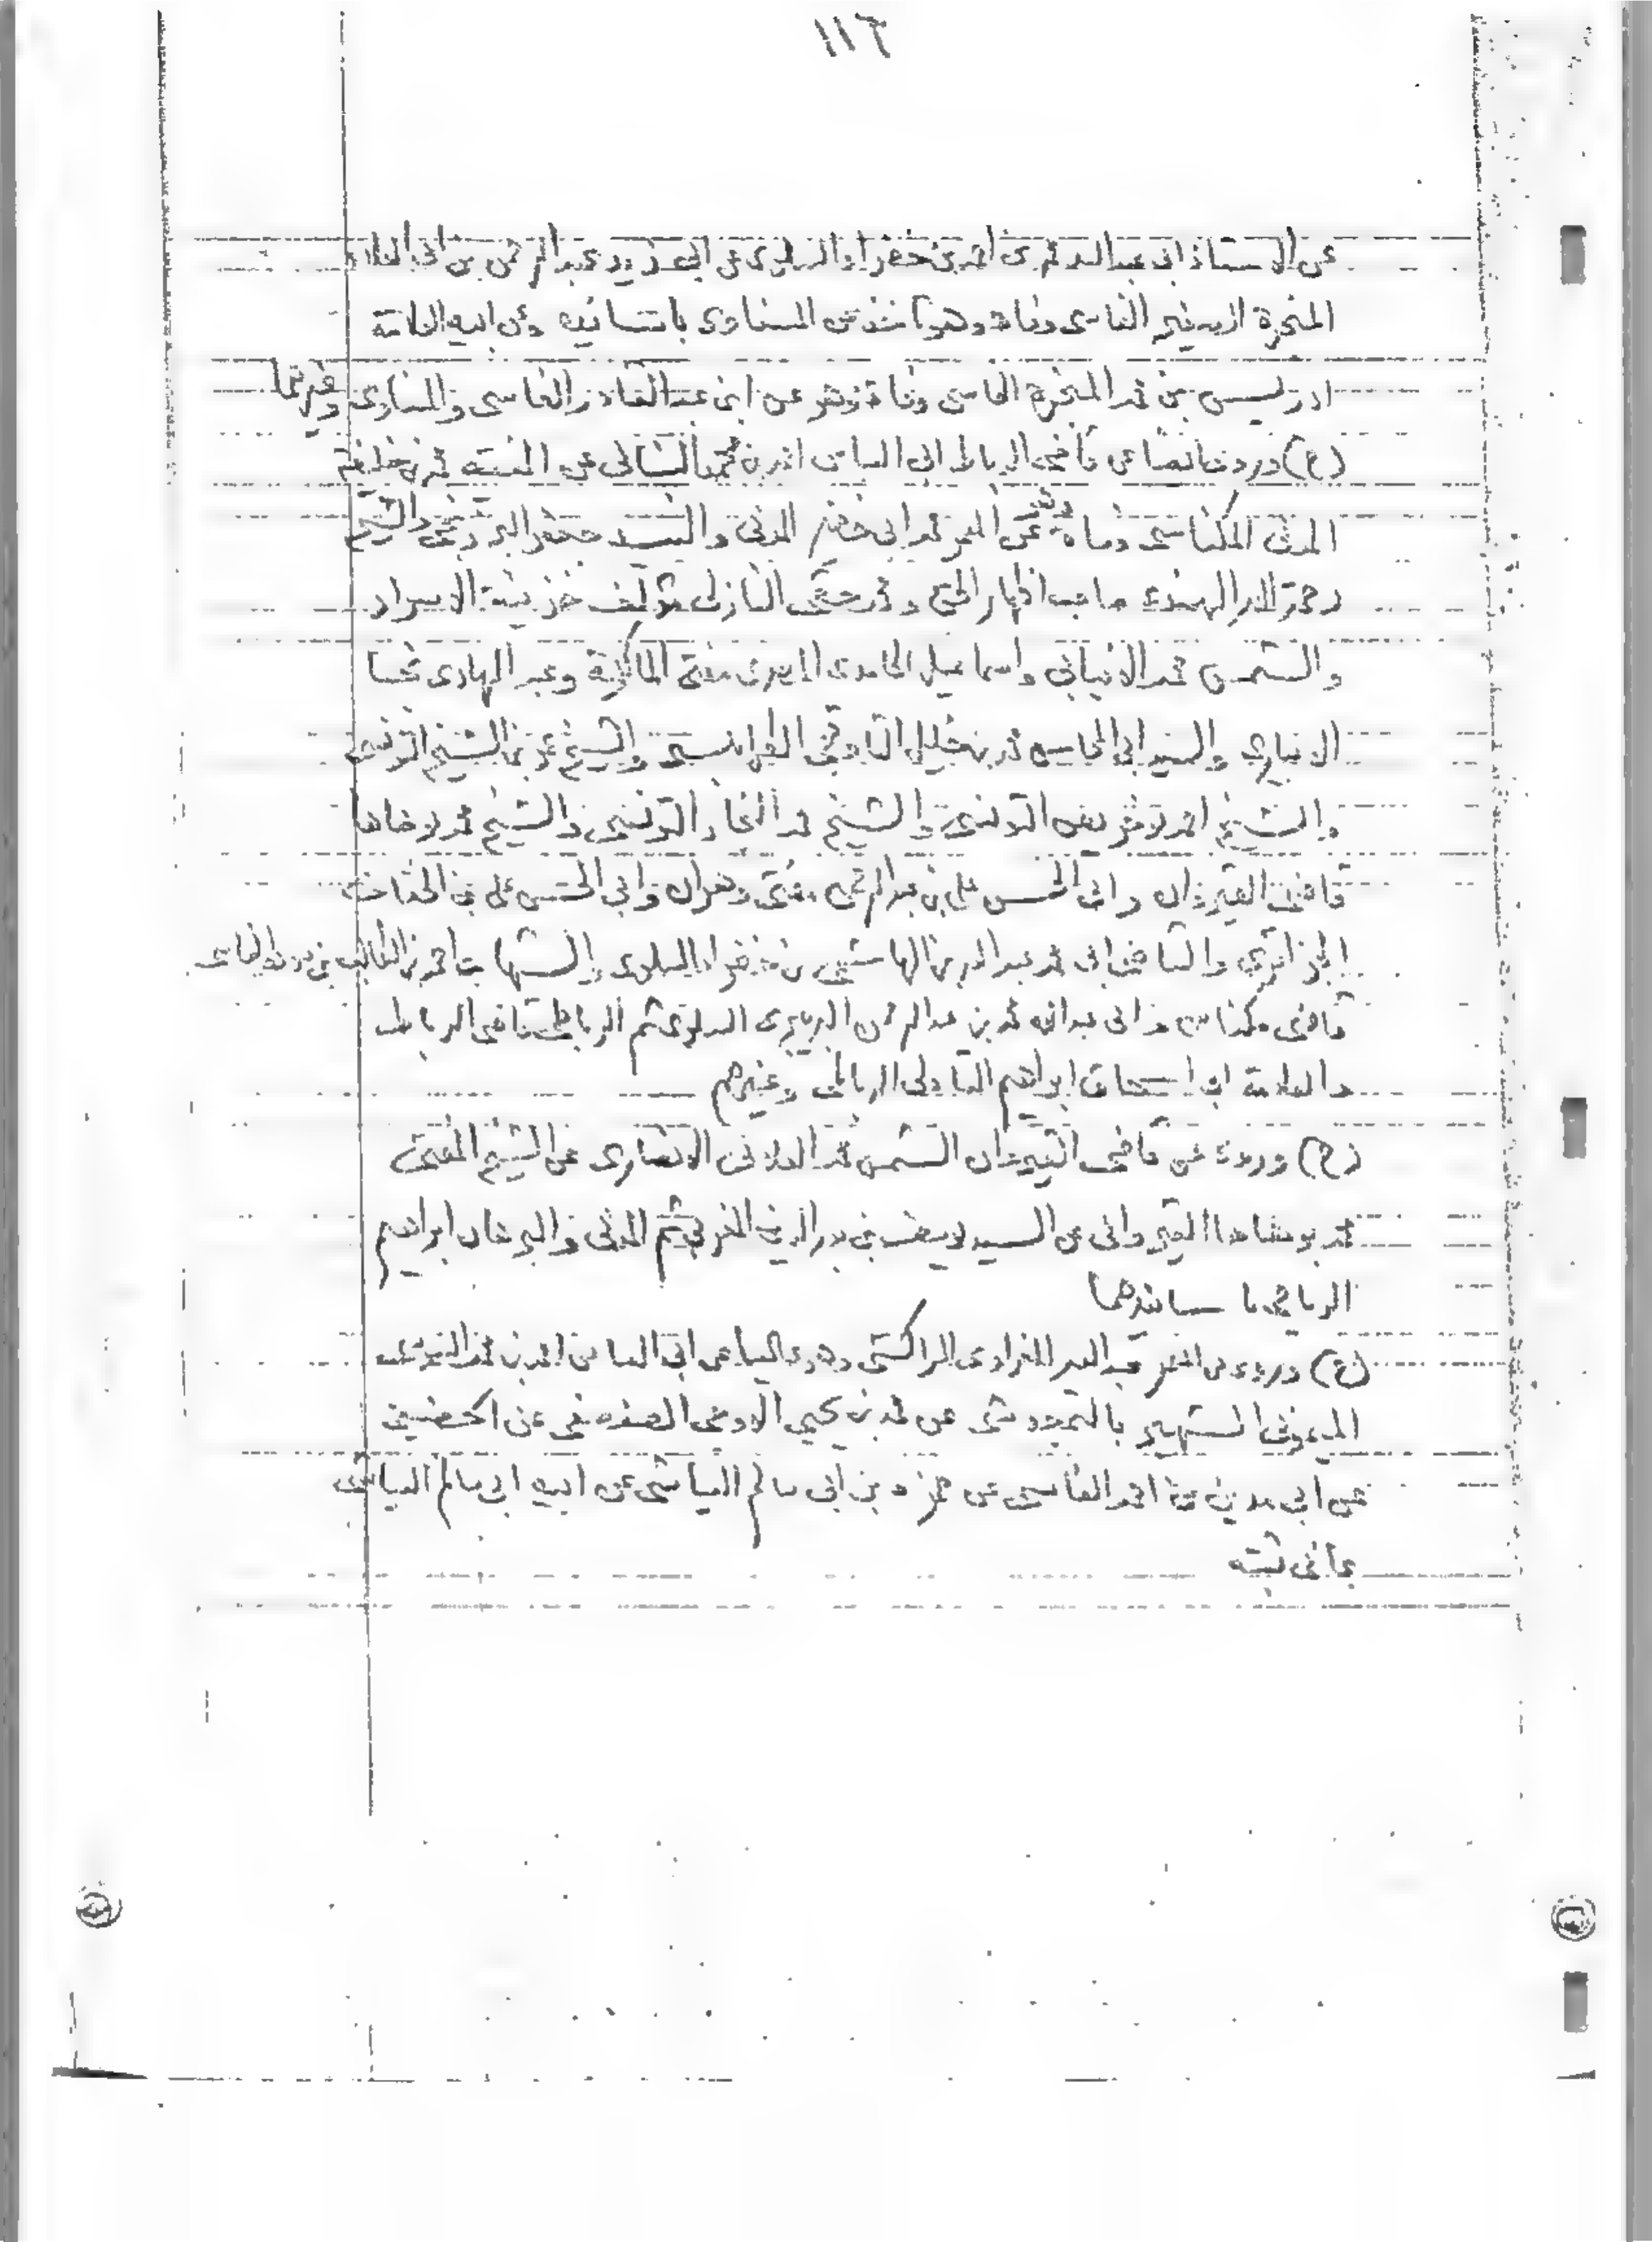 ١١٦
عن الاستاذ ابى عبد الله محمد بن احمد بن خضراء السلوى عن ابى زيد عبد الرحمن بن ابى العلاء
المنجرة الادريسى الفاسى وفاة وهو عن المسناوى باسانيده وعن ابيه العلامة
ادريس بن محمد المنجرة الفاسى وفاة وهو عن ابن عبد القادر الفاسى والمسناوى وغيرهما
(ح) وروى ايضا عن قاضى الرباط ابى العباس احمد بن محمد البنانى عن المسند محمد بن خليفة
المدنى المكناسى وفاة عن المعمر محمد ابى خضير المدنى والسيد جعفر البرزنجى والشيخ
رحمة الله الهندى صاحب اظهار الحق ومحمد حقى النازلى مؤلف خزينة الاسرار
والشمس محمد الانبابى واسماعيل الحامدى المصرى مفتى المالكية وعبد الهادى نجا
الابيارى والسيد ابى المحاسن محمد بن خليل القاوقجى الطرابلسى والشيخ عمر بن الشيخ التونسى
والشيخ احمد الشريف التونسى والشيخ محمد النجار التونسى والشيخ محمد بوهاها
قاضى القيروان وابى الحسن على بن عبد الرحمن مفتى وهران وابى الحسن على بن الحفاف
الجزائرى والقاضى ابى محمد عبد الله بن الهاشمى بن خضراء السلوى والشهاب احمد بن الطالب بن سودة الفاسى
قاضى مكناس وابى عبد الله محمد بن عبد الرحمن البريبرى السلوى ثم الرباطى قاضى الرباط
والعلامة ابى اسحاق ابراهيم التادلى الرباطى وغيرهم
(ح) وروى عن قاضى القيروان الشمس محمد العلانى الانصارى عن الشيخ المفتى
محمد بوهاها القيروانى عن السيد يوسف بن بدر الدين المغربى ثم المدنى والبرهان ابراهيم
الرياحى باسانيدهما
(ح) وروى عن المعمر عبد الله المغراوى المراكشى وهو عاليا عن ابى العباس احمد بن محمد
المرغوثى الشهير بالتمجدشتى عن محمد بن يحيى الاودى عن الحضيكى
عن ابى مدين بن احمد الفاسى عن حمزة بن ابى سالم العياشى عن ابيه ابى سالم العياشى
بما فى ثبته